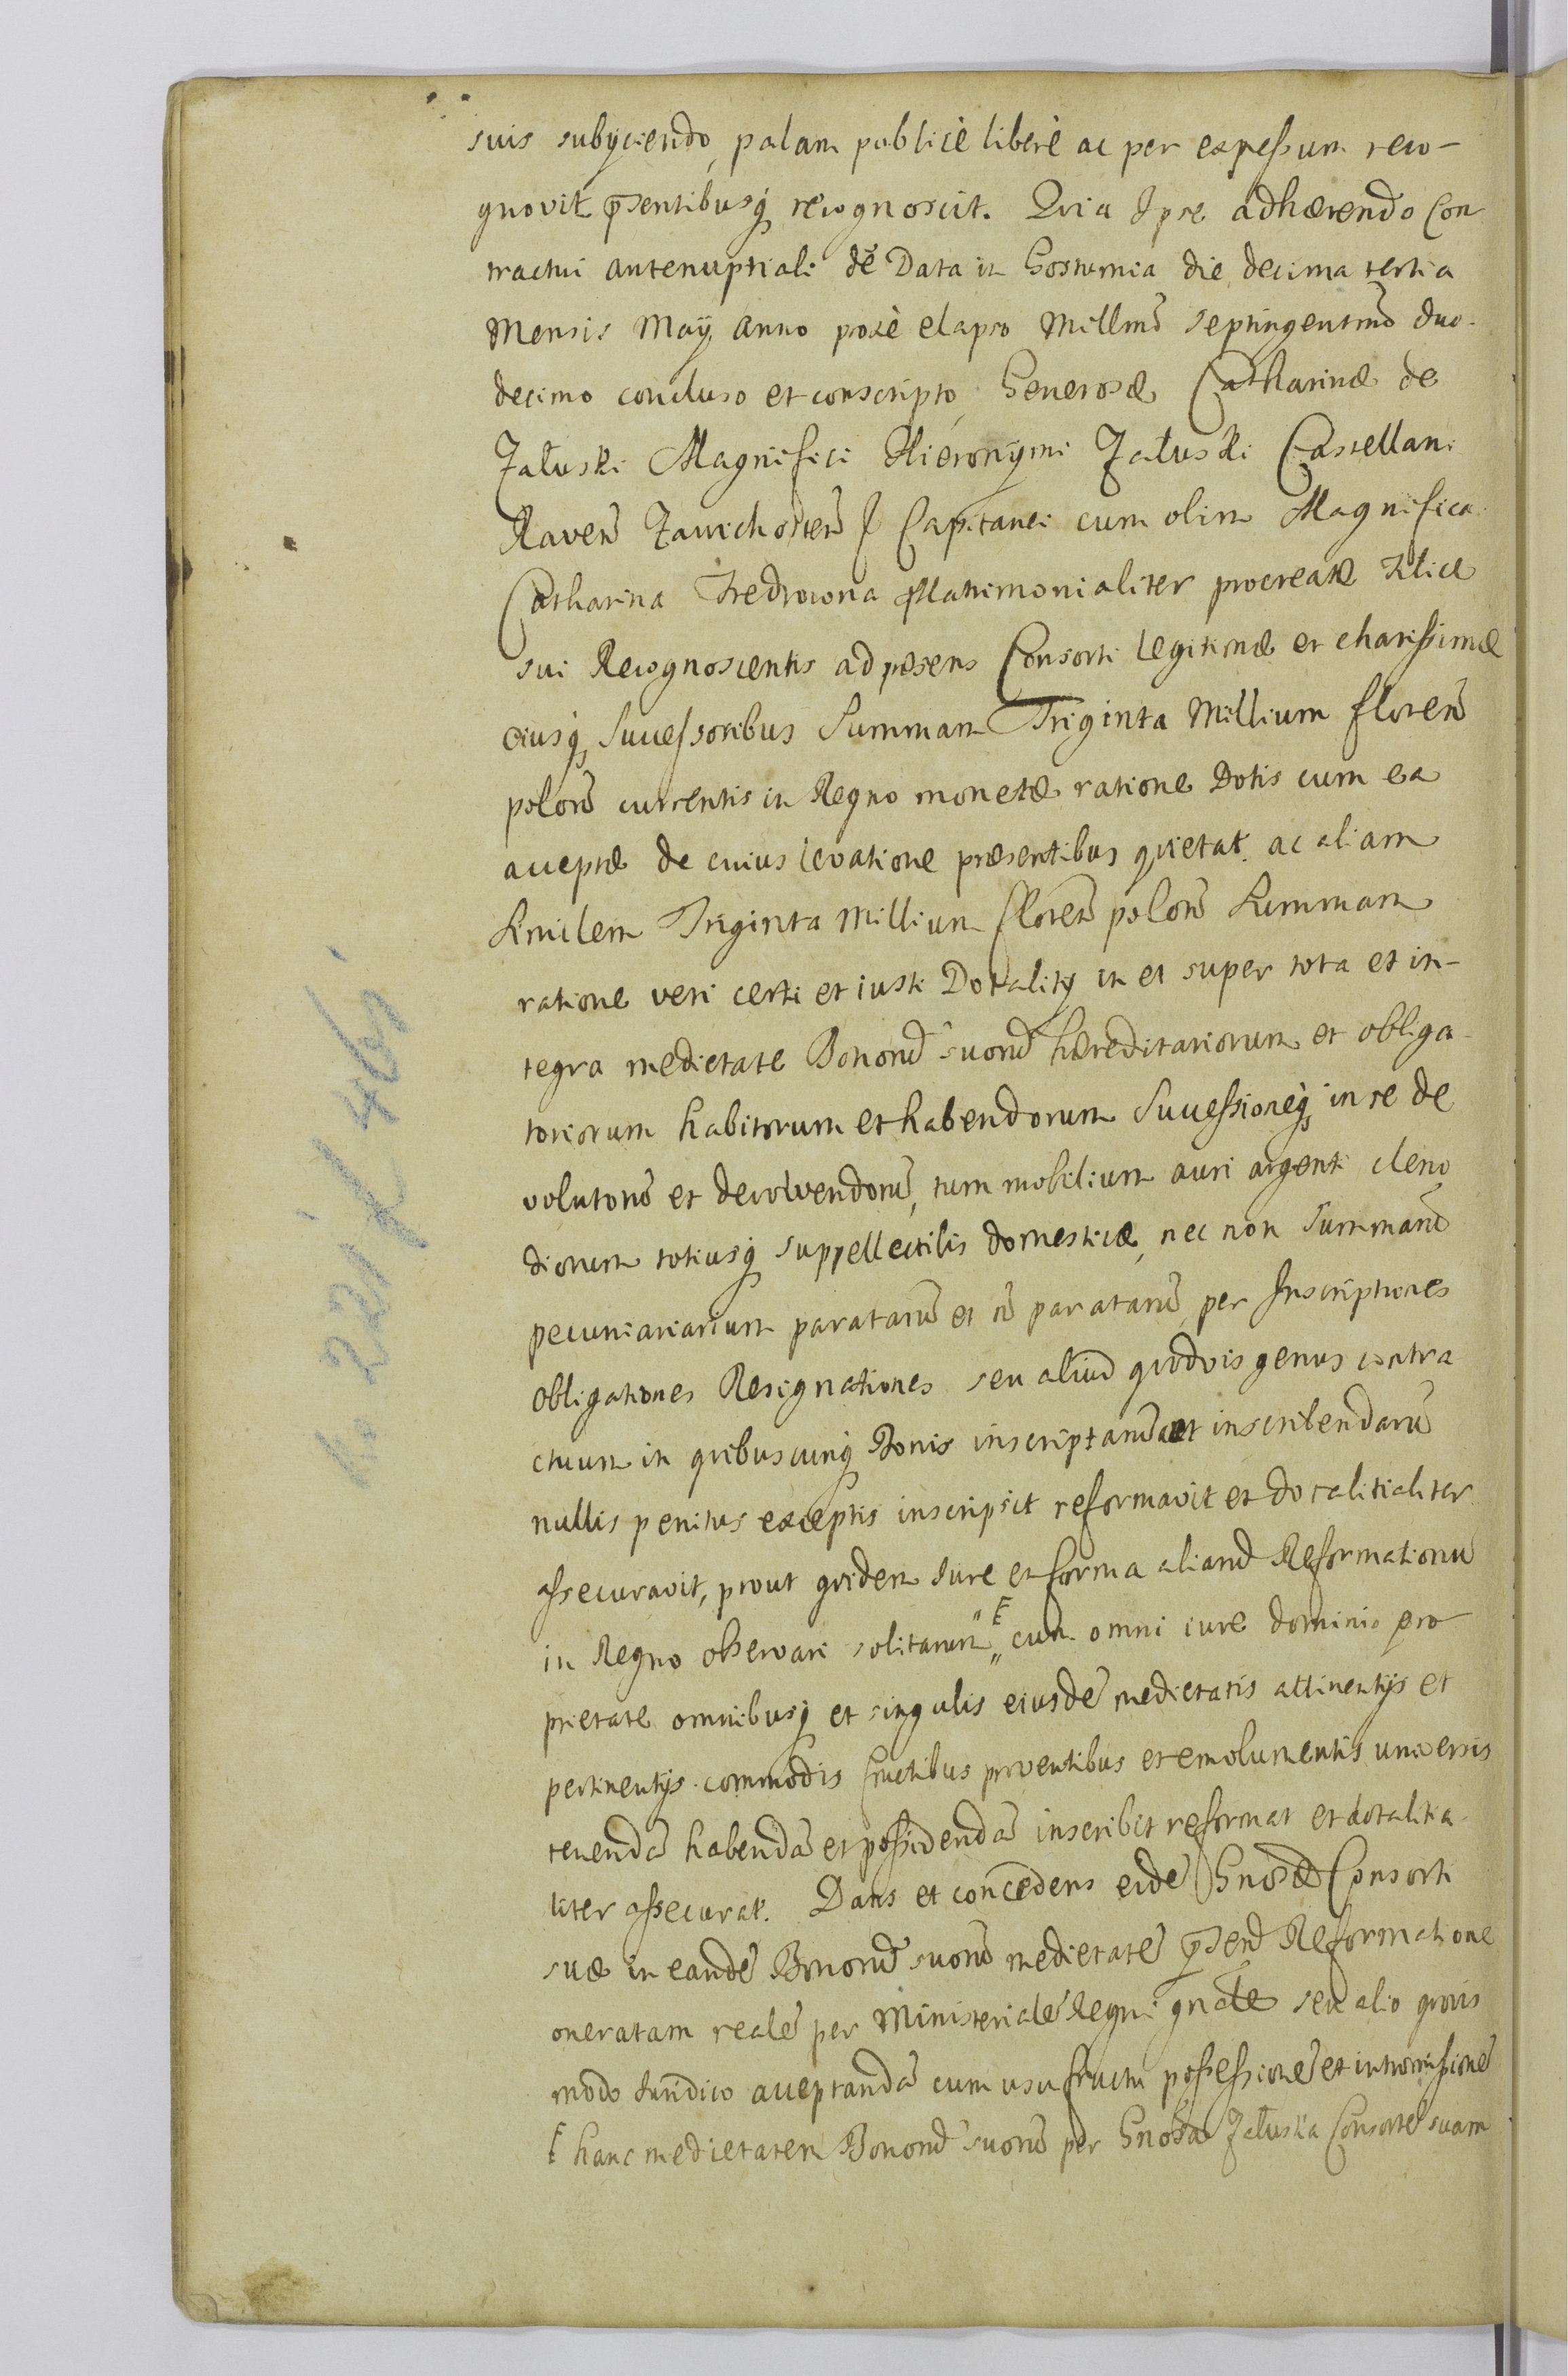 suis subÿciendo, palam publicè liberè ac per expressum reco-
gnovit p̄sentibusq́ recognoscit. Quia Ipse adhærendo Con
tractui antenuptiali de Data in Gostumia die decima tertia
Mensis Maÿ Anno proxè elapso Millmō Septingentmō duo.
decimo concluso et conscripto, Generosæ Catharinæ de
Załuski Magnifici Hieronÿmi Załuski Castellani
Raveñ Zawichosteñ Capitanei cum olim Magnifica
Catharina Fredrowna Matrimonialiter procreatæ Filiæ
sui Recognoscentis ad præsens Consorti Legitimæ et charissimæ
eiusq́ Successoribus Summam Triginta Millium floreñ
poloñ currentis in Regno monetæ ratione Dotis cum ea
acceptæ de cuius levatione præsentibus quietat. ac aliam
Similem Triginta Millium floreñ poloñ Summam
ratione veri certi et iusti Dotalitÿ in et super tota et in-
tegra medietate Bonorū suorū hæreditariorum et obliga
toriorum habitorum et habendorum Successioneq́ in se de
volutorū et devolvendorū, tum mobilium auri argenti cleno
diorum totiusq́ suppellectilis domesticæ, nec non Summarū
pecuniariarum paratarū et nō paratarū, per Inscriptiones
Obligationes Resignationes seu aliud quodvis genus contra
ctuum in quibuscunq́ Bonis inscriptarū et inscribendarū
nullis penitus exceptis inscripsit reformavit et dotalitialiter
assecuravit, prout quidem Iure et forma aliarū Reformationū
in Regno observari solitarum " F " cum omni iure dominio pro
prietate omnibusq́ et singulis eiusdē medietatis attinentÿs et
pertinentÿs. commodis fructibus proventibus et emolumentis universis
tenendā habendā et possidendā inscribit reformat et dotalitia
liter assecurat. Dans et concedens eidē Gnosæ Consorti
suæ in eandē Bonorū suorū medietatē p̄send Reformatione
oneratam realē per Ministerialē Regni gnalē seu alio quovis
modo Iuridico acceptandā cum usufructu possessionē et intromissionē
F hanc medietatem Bonorū suorū per Gnosā Załuska Consortē suam
No 221 f 46